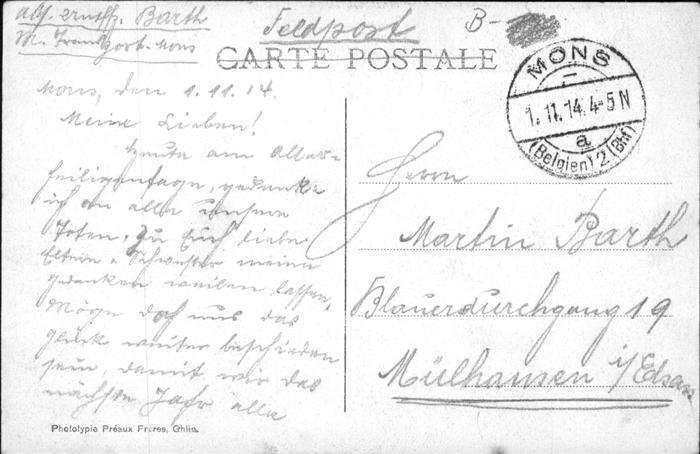 Barth
Feldpost
B-
M. Mons
CARTE POSTALE
MONS
1.11.14.4-5N
a
(Belgien) 2 (Bhf)
Mons, den 1.11.14.
Meine Lieben!
Heute am Aller-
heiligentage, gedenke
ich an alle unsere
Toten, zu Euch liebe
Eltern u Schwester meine
Gedanken weilen lassen,
Möge doch uns das
Glück weiter beschieden
sein, damit wir das
nächste Jahr alle
Herrn
Martin Barth
Blauerdurchgang 19
Mülhausen i/Elsass
Phototypie Préaux Freres, Ghlin.